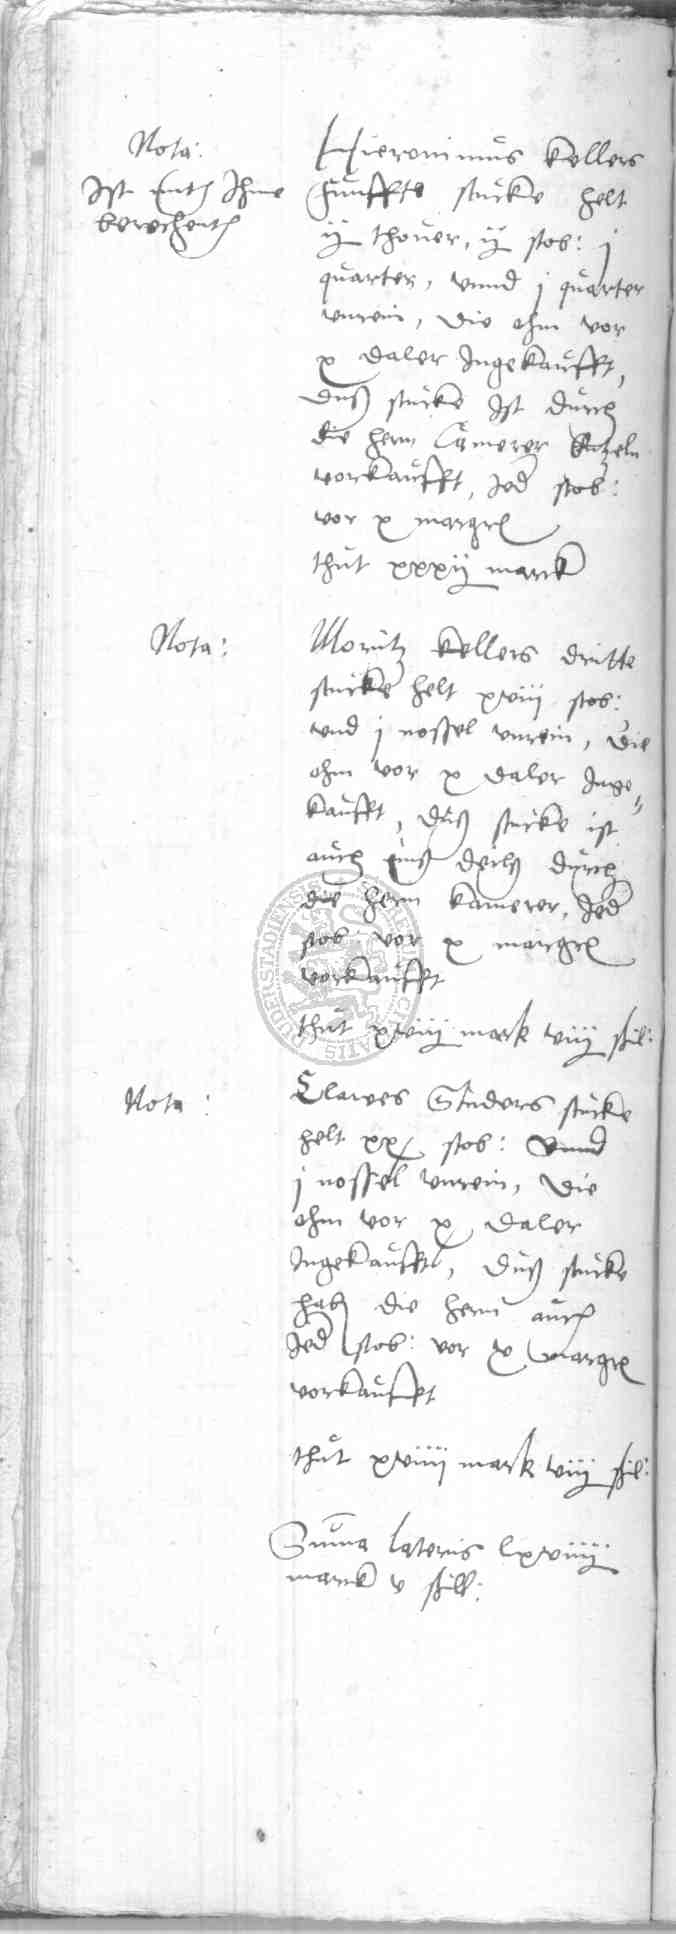 Nota:
Ist mit Ihme
berechent
Hieronimus kellers
funffte stucke helt
ij thover, ij stob: j
quarter, vnnd j quarter
vnrein, die ohm vor
x daler Ingekaufft,
duß stucke Ist durch
die hern Cemerer
vorkaufft, Jed stob:
vor x margr
thut xxxij marck
Nota:
Moritz kellers dritte
stucke helt xviij stob:
vnd j nossel vnrein, die
ohm vor x daler Inge-
kaufft, duß stucke ist
auch durch
die hern kamerer, Jed
stob vor x margr
vorkaufft
thut xviiij mark viiij schil:
Nota:
Clawes Studers stucke
helt xx stob: vnnd
j nossel vnrein, die
ohm vor x daler
Ingekaufft, duß stucke
hab die hern auch
Jed stob: vor x margr
vorkaufft
thut xviiij mark viij schil:
Suma lateris lxviiij
marck v schill:
SECRETUM CIVITATIS DUDERSTADIENSIS